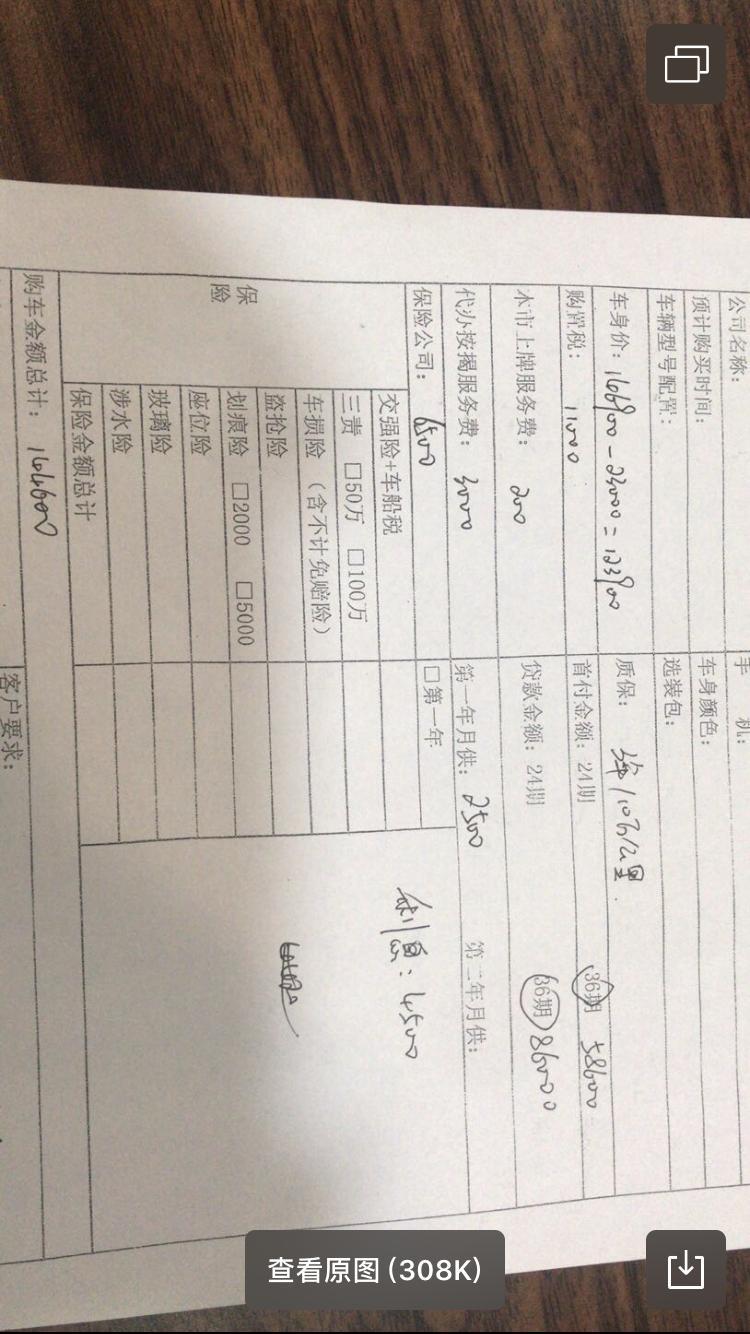 公司名称：
手 机：
预计购买时间：
车身颜色：
车辆型号配置：
选装包：
车身价：146900 - 23000 = 123900
质保：3年/10万公里
购置税：11000
首付金额：24期 36期 58600
本市上牌服务费：200
贷款金额：24期 36期 86000
代办按揭服务费：3000
第一年月供：2500 第二年月供：
保险公司：6500
□第一年
保险
交强险+车船税
三责 □50万 □100万
车损险（含不计免赔险）
盗抢险
划痕险 □2000 □5000
座位险
玻璃险
涉水险
保险金额总计
利息：4500
购车金额总计：144600
客户要求：
查看原图 (308K)